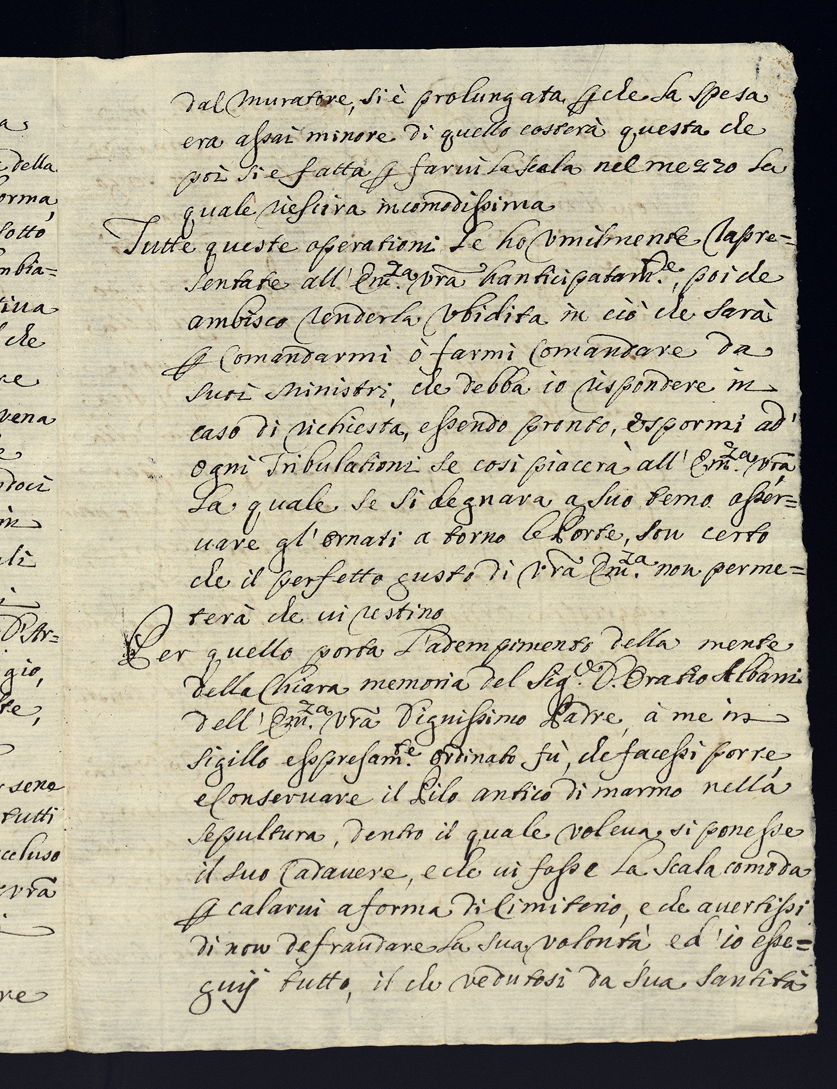 a
della
orma,
sotto
mbia=
tiua
che
re
vena
e
in
li
D'Ar=
gio,
te,
sene
tutti
ccluso
vrã
re
dal muratore, si è prolungata ꝑche la spesa
era assai minore di quello costerà questa che
poi si e fatta ꝑ farui la scala nel mezzo la
quale riescira incomodissima
Tutte queste operationi le ho vmilmente rapre=
sentate all' Em.za vrã anticipatam.te, poi che
ambisco renderla vbidita in ciò che sarà
ꝑ comandarmi ò farmi comandare da
suoi Ministri, che debba io rispondere in
caso di richiesta, essendo pronto, espormi ad
ogni Tribulationi se cosi piacerà all' Em.za vrã
La quale se si degnara a suo temo osser=
uare gl' ornati a torno le Porte, son certo
che il perfetto gusto di vrã Em.za non perme=
terà che ui restino
Per quello porta l'adempimento della mente
della Chiara memoria del Sig.r D. Oratio Albani
dell' Em.za vrã Dignissimo Padre, à me in
sigillo esspresam.te ordinato fù, che facessi porre,
e Conseruare il Pilo antico di marmo nella
sepultura, dentro il quale voleua si ponesse
il suo Cadauere, e che ui fosse la scala comoda
ꝑ calarui a forma di Cimiterio, e che auertissi
di non defraudare la sua volontà ed io esse=
guij tutto, il che vedutosi da sua santità